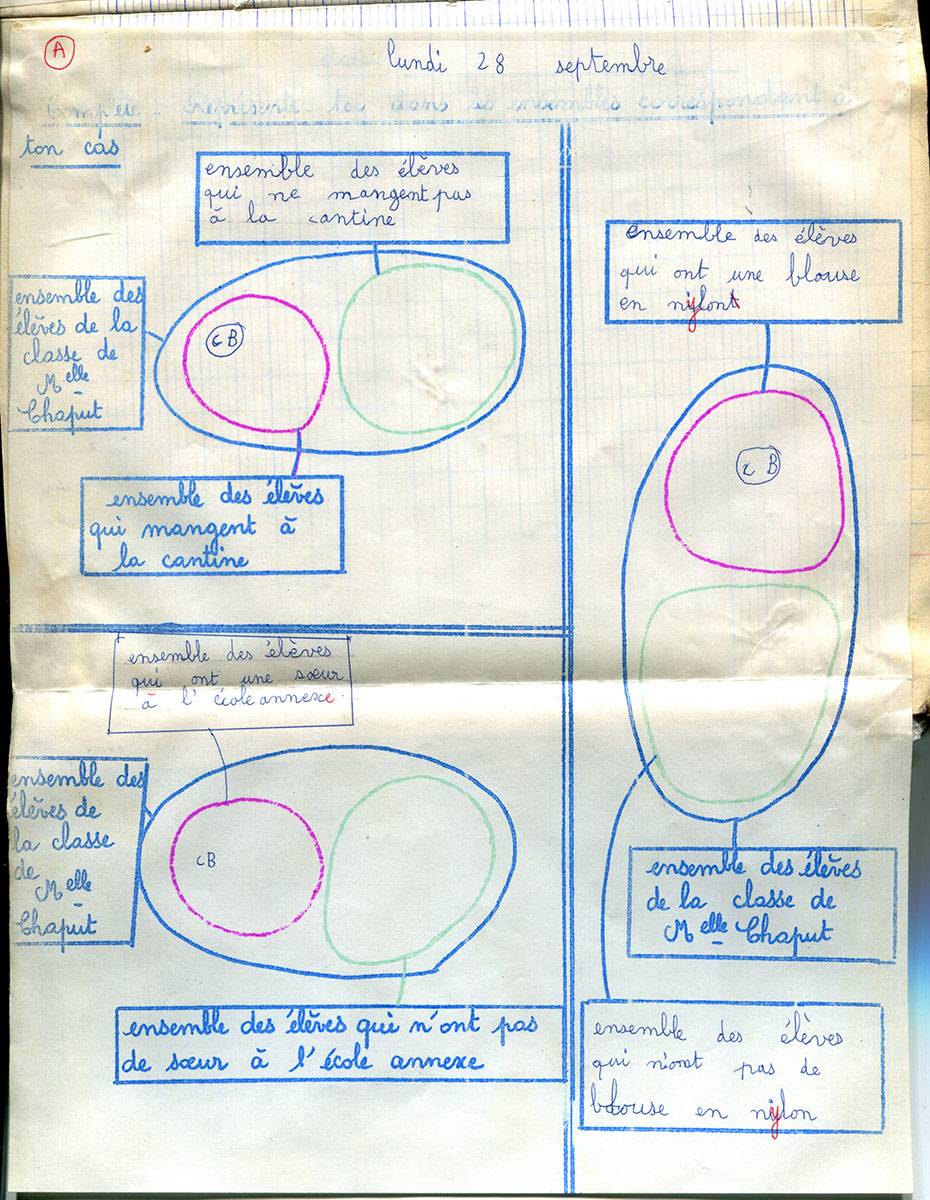 A
lundi 28 septembre
Complète - Représente toi dans les ensembles correspondant à
ton cas
ensemble des élèves
qui ne mangent pas
à la cantine
ensemble des
élèves de la
classe de
Melle
Chaput
CB
ensemble des élèves
qui mangent à
la cantine
ensemble des élèves
qui ont une blouse
en nylont
CB
ensemble des élèves
de la classe de
Melle Chaput
ensemble des élèves
qui n'ont pas de
blouse en nylon
ensemble des élèves
qui ont une sœur
à l'école annexe
ensemble des
élèves de
la classe
de
Melle
Chaput
CB
ensemble des élèves qui n'ont pas
de sœur à l'école annexe